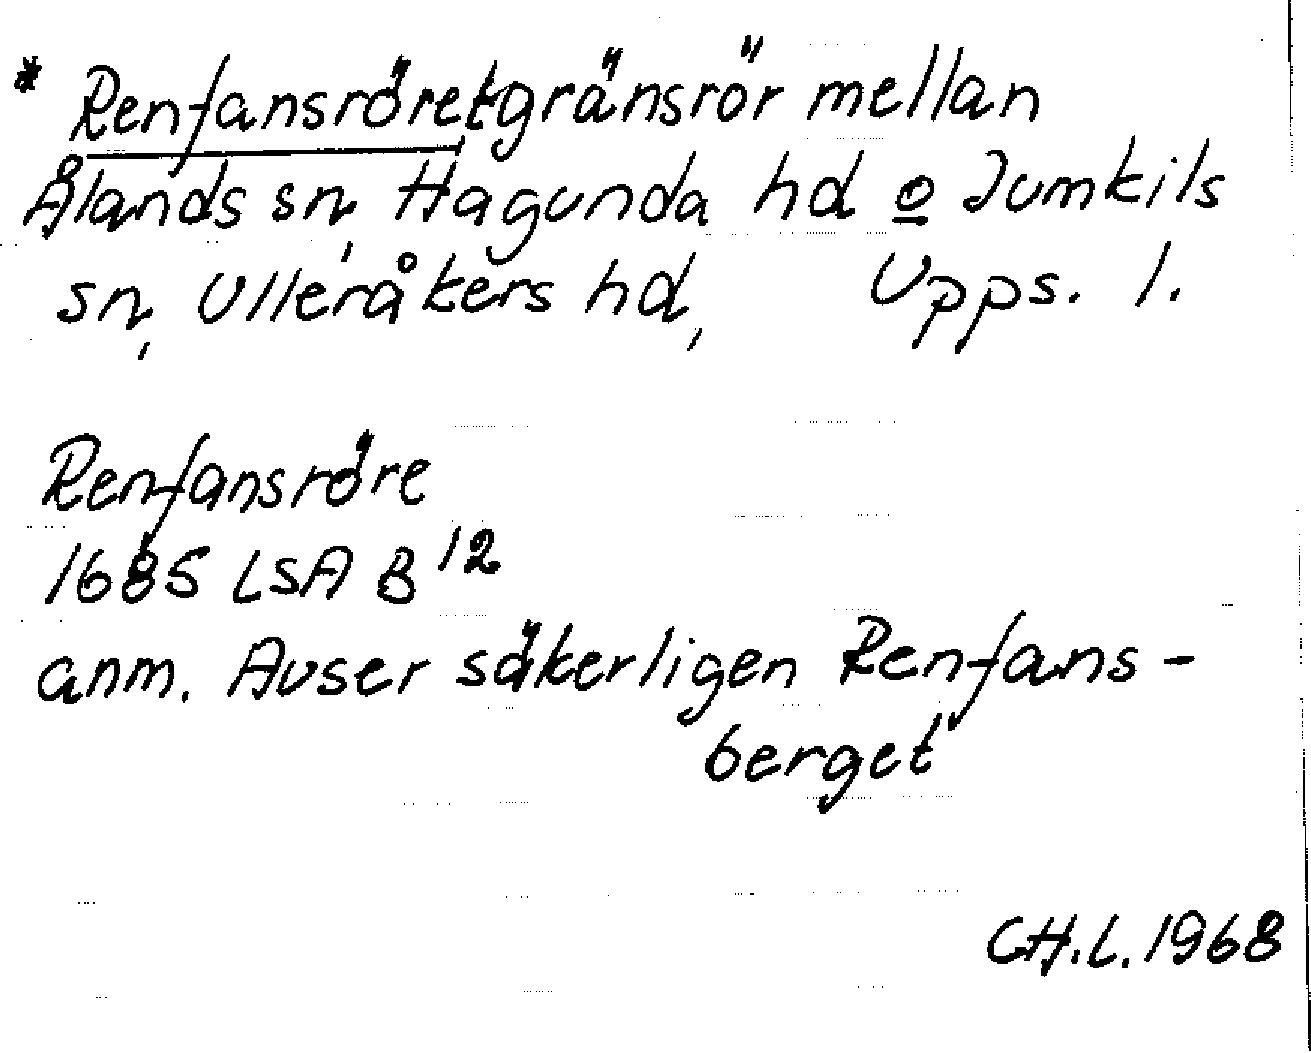 * Renfansröret, gränsrör mellan
Ålands sn, Hagunda hd o Jumkils
sn, Ulleråkers hd, Upps. l.
Renfansröre
1685 LSA B 12
anm. Avser säkerligen Renfans-
berget
CH.L. 1968